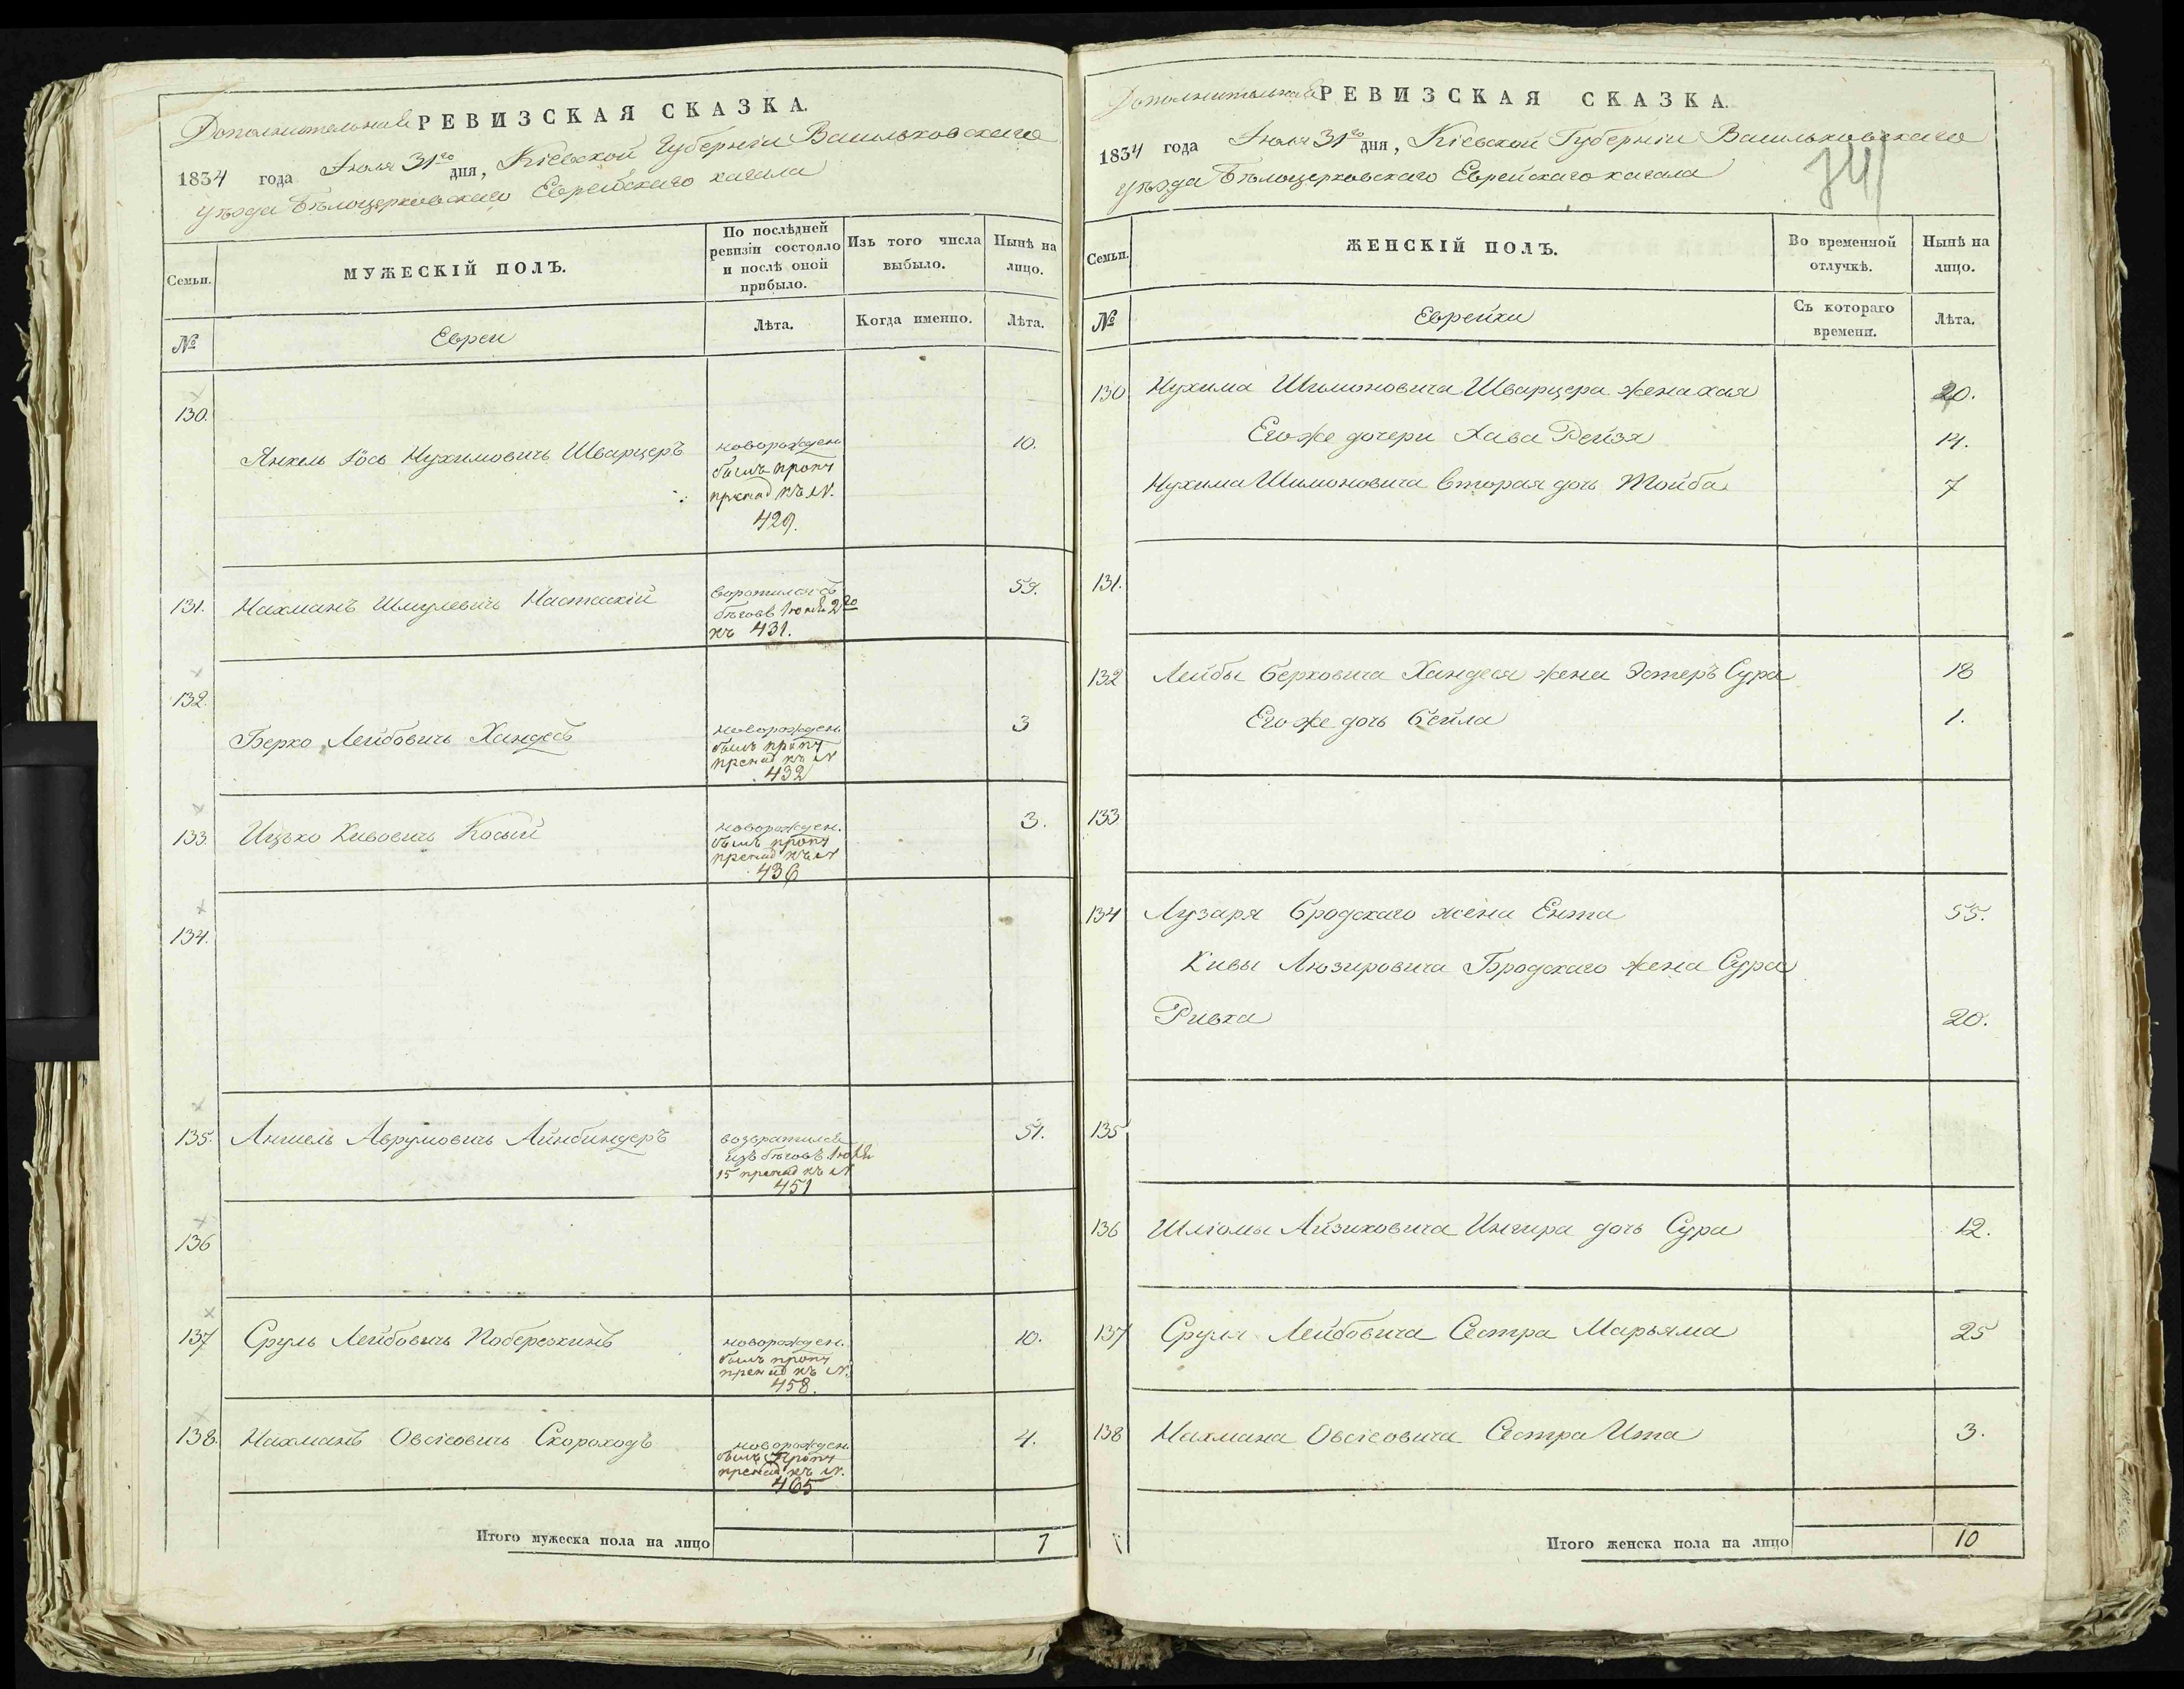 Дополнительная РЕВИЗСКАЯ СКАЗКА.
1834 года Июля 31го дня, Кіевской Губерніи Васильковскаго
уѣзда Бѣлоцерковскаго Еврейскаго кагала
Семьи.
МУЖЕСКІЙ ПОЛЪ.
По послѣдней ревизіи состояло и послѣ оной прибыло.
Изъ того числа выбыло.
Нынѣ на лицо.
№
Евреи
Лѣта.
Когда именно.
Лѣта.
130.
Янкель Іось Нухимовичь Шварцеръ
новорожден.
10.
былъ проп
къ №.
429.
131.
Нахманъ Шмулевичь Настаскій
59.
бѣговъ Іюля 2го
къ 431.
132.
Берко Лейбовичь Хандесъ
новорожден.
3
былъ проп
къ №
432
133.
Ицько Кивовичь Косый
новорожден.
3.
былъ проп
къ №
436
134.
135.
Аншель Аврумовичь Айнбиндеръ
возвратился
51.
изъ бѣговъ Іюля
15 къ №
451
136
137
Сруль Лейбовичь Побережкинъ
новорожден.
10.
былъ проп
къ №.
458.
138.
Нахманъ Овсіовичь Скороходъ
новорожден.
4.
былъ проп
къ №.
465
Итого мужеска пола на лицо
7
Дополнительная РЕВИЗСКАЯ СКАЗКА.
1834 года Июля 31го дня, Кіевской Губерніи Васильковскаго
уѣзда Бѣлоцерковскаго Еврейскаго кагала
Семьи.
ЖЕНСКІЙ ПОЛЪ.
Во временной отлучкѣ.
Нынѣ на лицо.
№
Еврейки
Съ котораго времени.
Лѣта.
130 Нухима Шимоновича Шварцера жена хая 20.
Его же дочери Хава Рейзя 14.
Нухима Шимоновича вторая дочь Тойба 7
131.
132 Лейбы Берковича Хандеся жена Эстеръ Сура 18
Его же дочь Бейла 1.
133
134 Лузаря Бродскаго жена Ента 55.
Кивы Люзировича Бродскаго жена Сура
Ривка 20.
135
136 Шліомы Айзиковича дочь Сура 12.
137 Сруля Лейбовича Сестра Марьяма 25
138 Нахмана Овсіовича Сестра Ита 3.
Итого женска пола на лицо 10